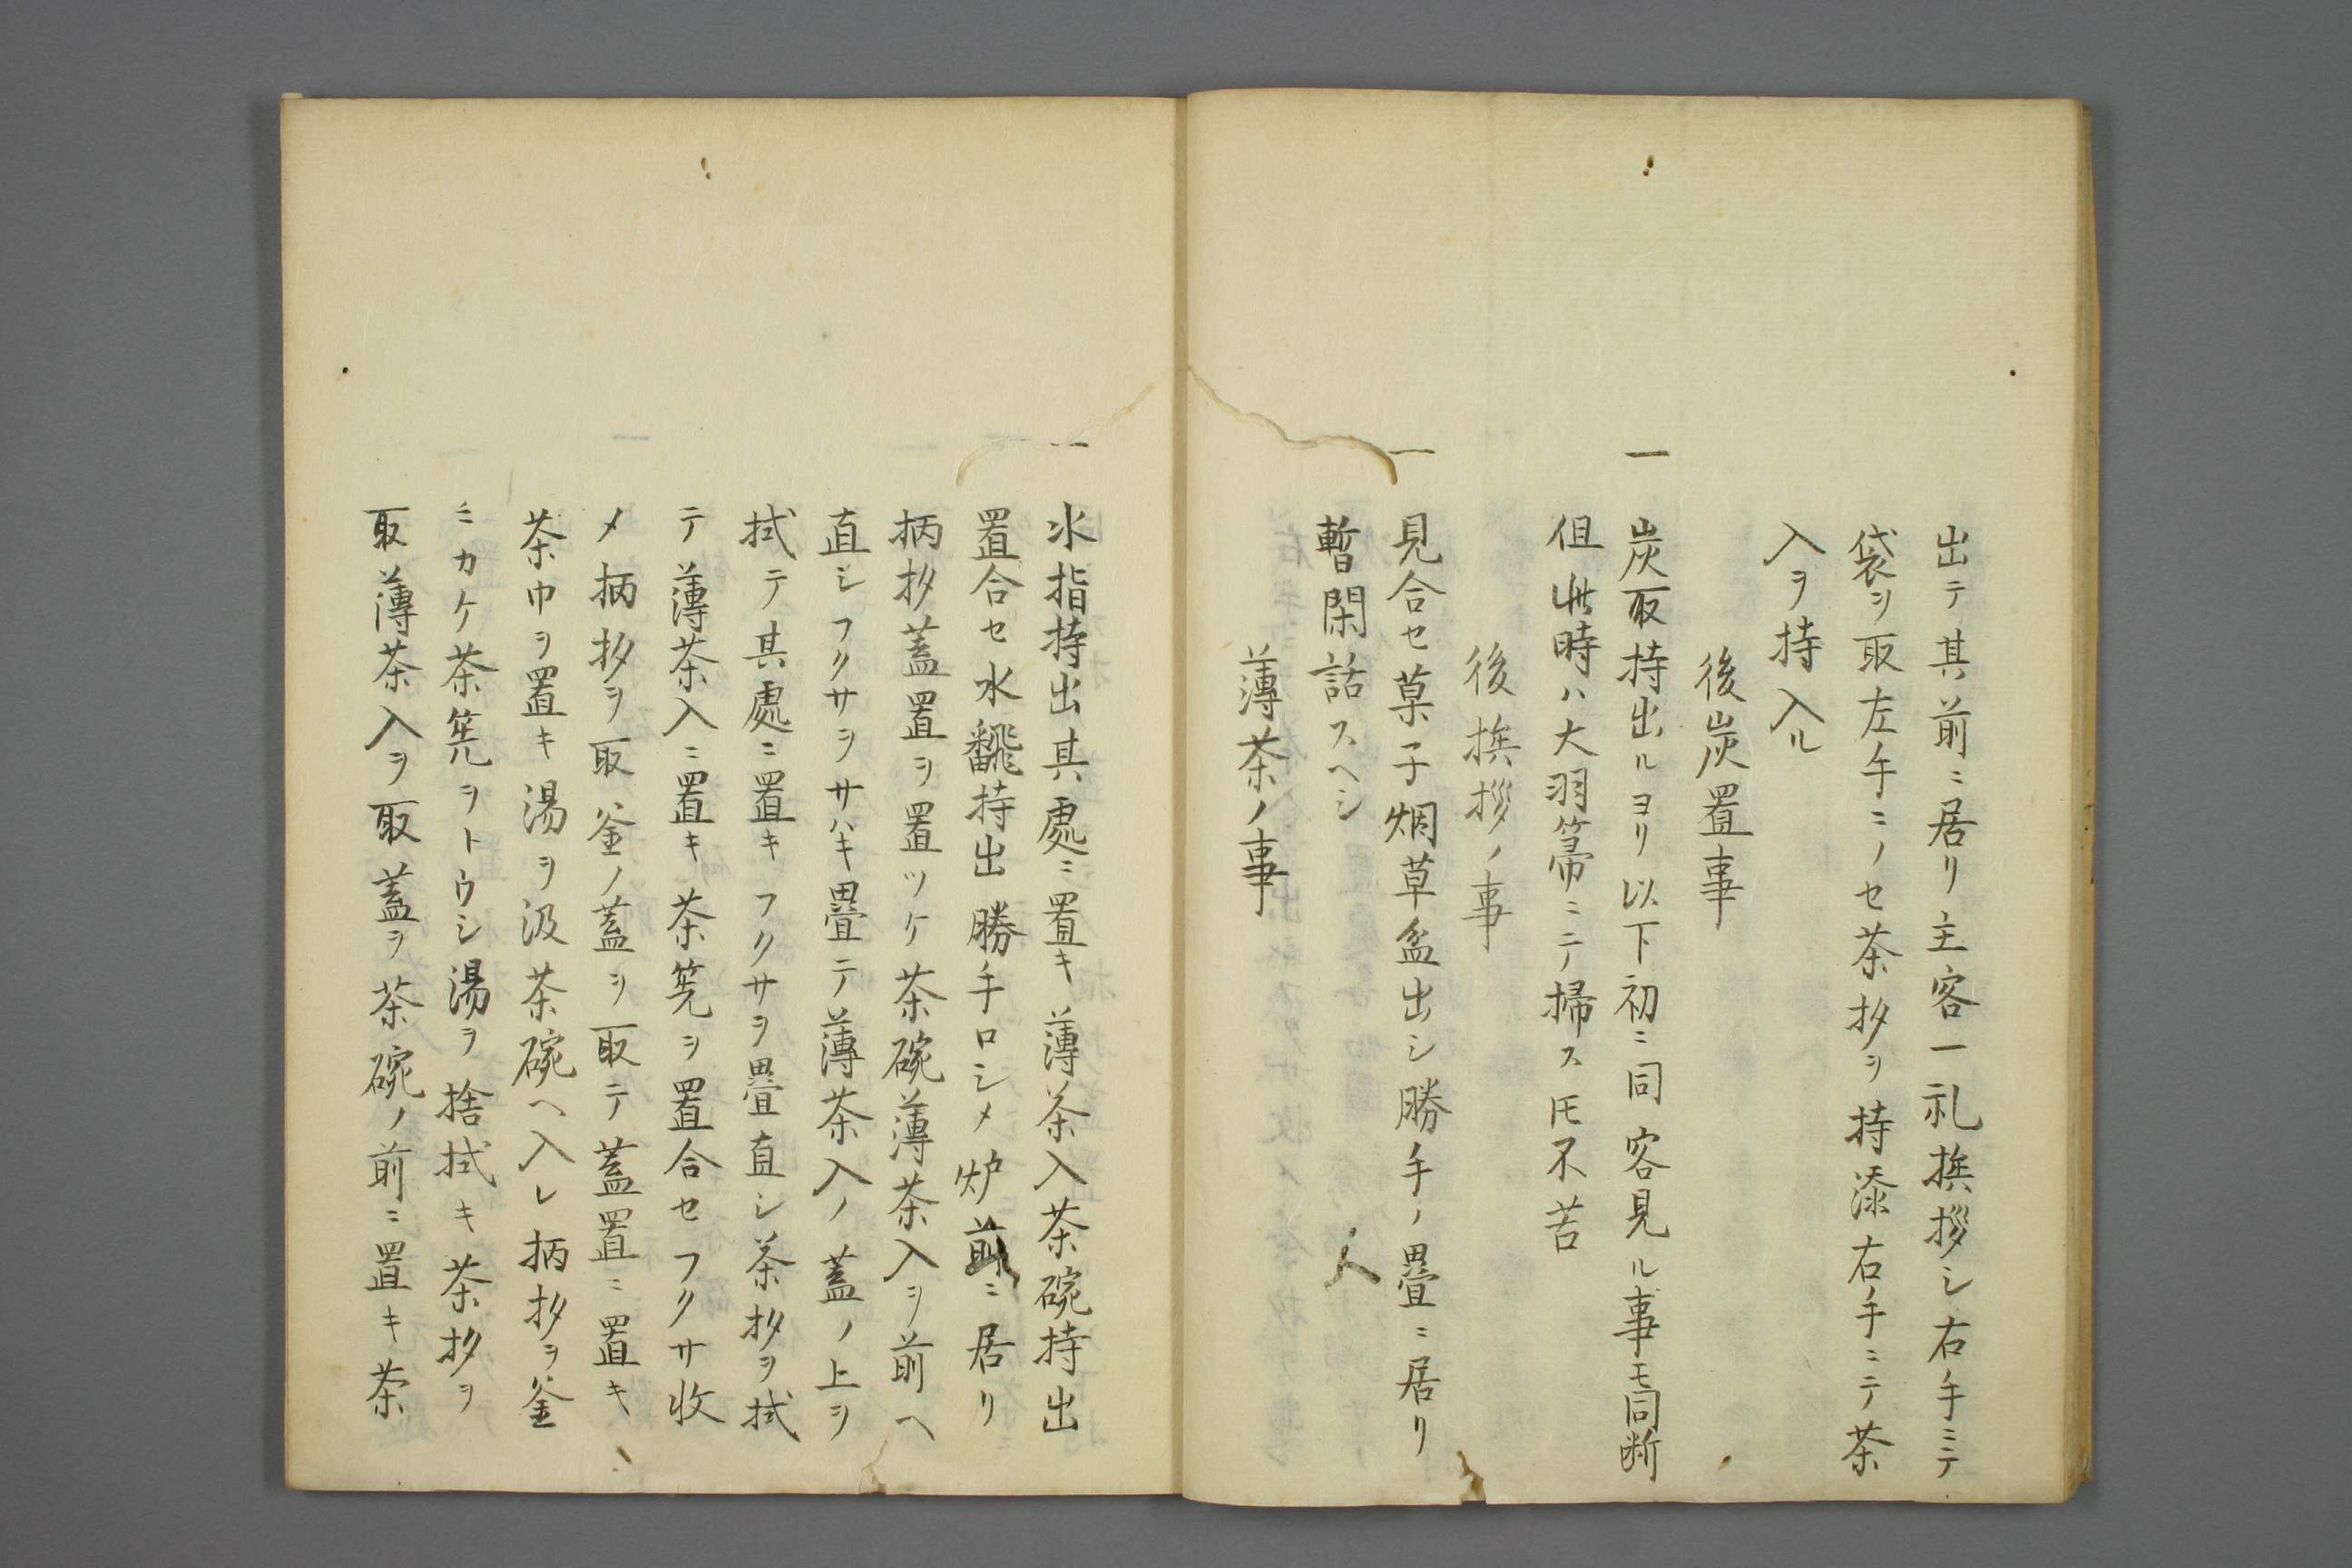 出テ其前ニ居リ主客一礼挨拶シ右手ニテ
袋ヲ取左手ニノセ茶杓ヲ持添右ノ手ニテ茶
入ヲ持入ル
後炭置事
一 炭取持出ルヨリ以下初ニ同客見ル事モ同断
但此時ハ大羽箒ニテ掃スヒ不苦
後挨拶ノ事
一 見合セ菓子烟草盆出シ勝手ノ畳ニ居リ
暫閑話スヘシ
薄茶ノ事
一 水指持出其處ニ置キ薄茶入茶碗持出
置合セ水飜持出勝手口シメ炉前ニ居リ
柄杓蓋置ヲ置ツケ茶碗薄茶入ヲ前ヘ
直シフクサヲサハキ畳テ薄茶入ノ蓋ノ上ヲ
拭テ其處ニ置キフクサヲ畳直シ茶杓ヲ拭
テ薄茶入ニ置キ茶筅ヲ置合セフクサ收
メ柄杓ヲ取釜ノ蓋ヲ取テ蓋置ニ置キ
茶巾ヲ置キ湯ヲ汲茶碗ヘ入レ柄杓ヲ釜
ニカケ茶筅ヲトウシ湯ヲ捨拭キ茶杓ヲ
取薄茶入ヲ取蓋ヲ茶碗ノ前ニ置キ茶